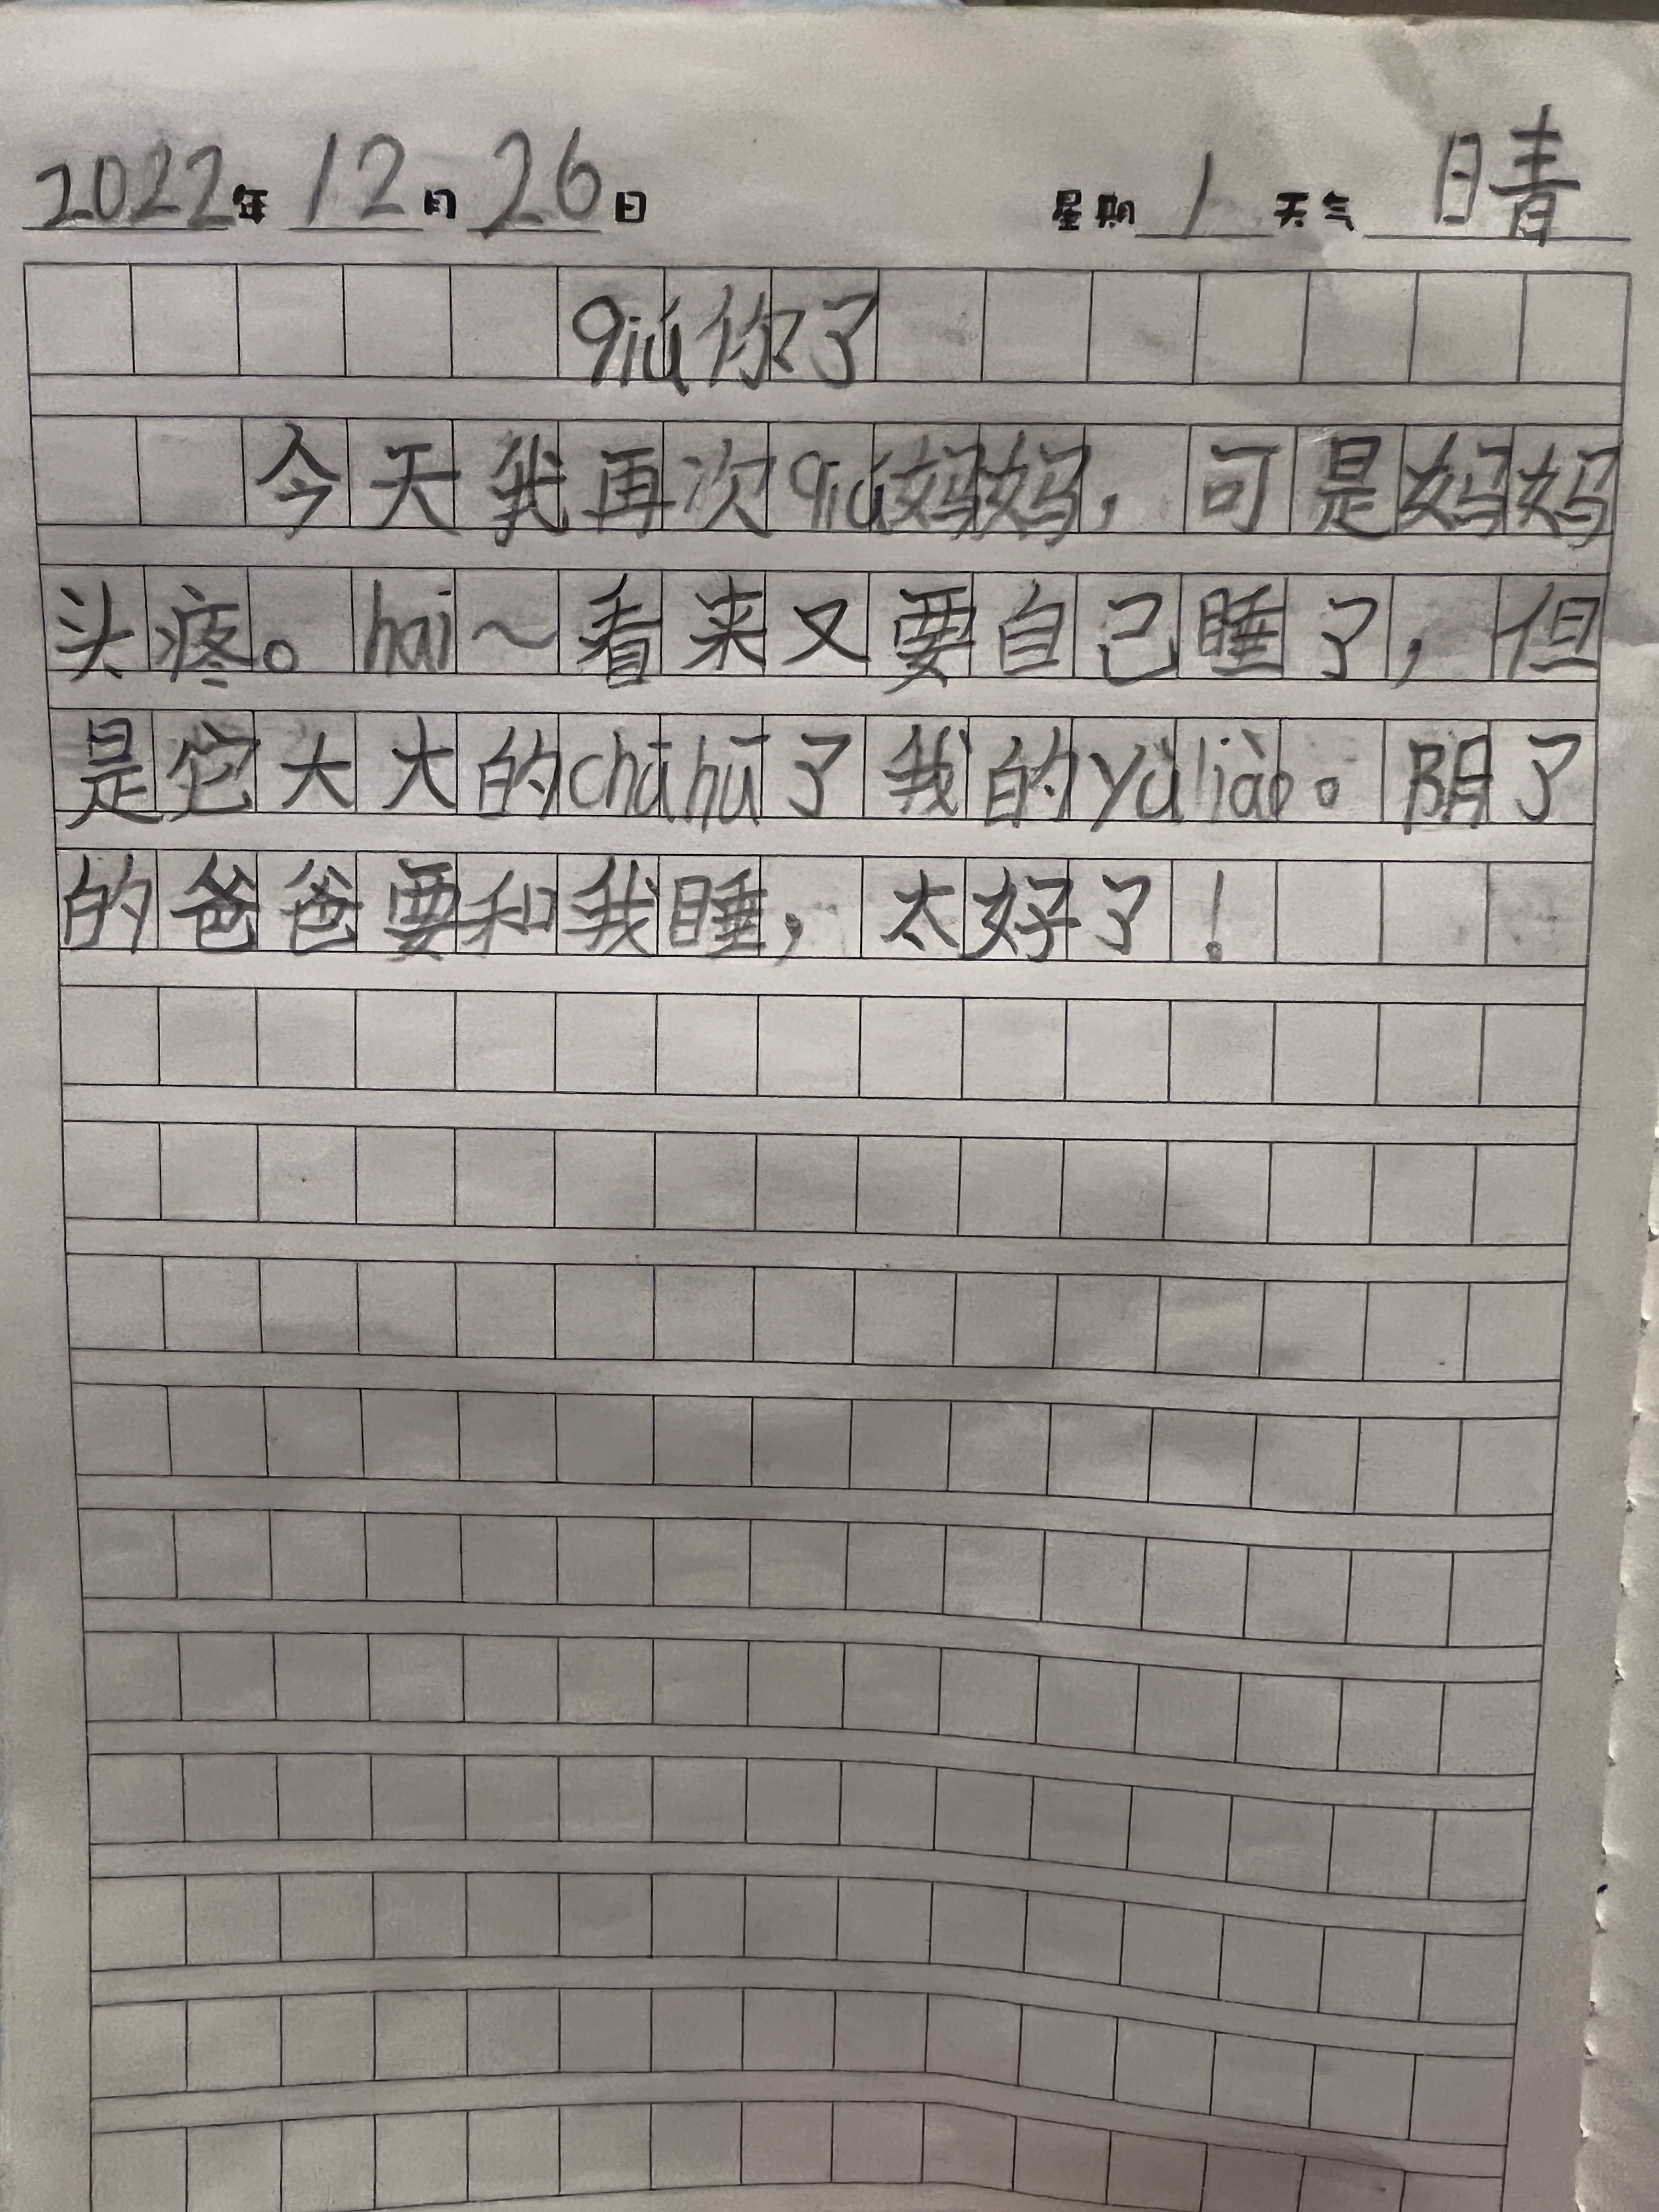 2022年12月26日 星期1天气晴
qiú你了
今天我再次qiú妈妈，可是妈妈
头疼。hai～看来又要自己睡了，但
是它大大的chūhū了我的yùliào。阴了
的爸爸要和我睡，太好了！